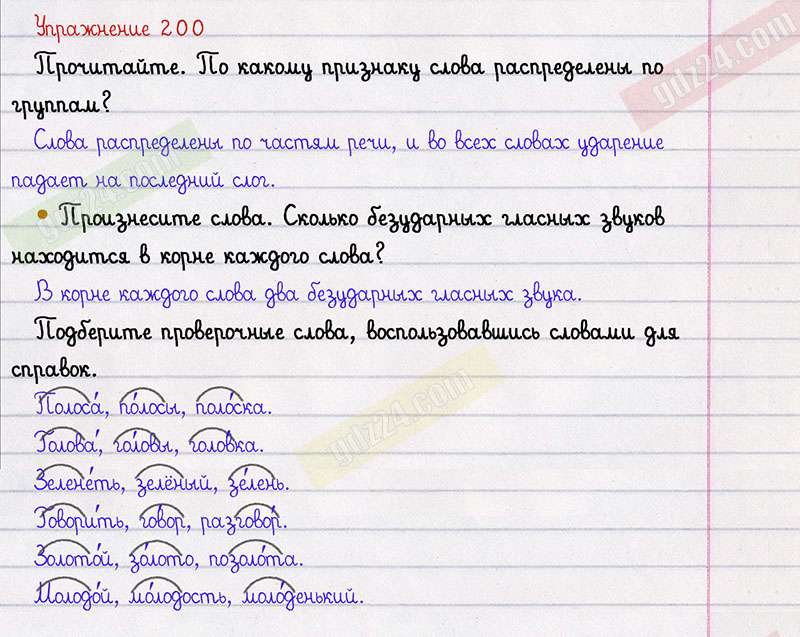 Упражнение 200
gdz24.com
Прочитайте. По какому признаку слова распределены по
группам?
Слова распределены по частям речи, и во всех словах ударение
падает на последний слог.
gdz24.com
• Произнесите слова. Сколько безударных гласных звуков
находится в корне каждого слова?
В корне каждого слова два безударных гласных звука.
Подберите проверочные слова, воспользовавшись словами для
справок.
Полоса́, по́лосы, поло́ска.
gdz24.com
Голова́, го́ловы, голо́вка.
Зелене́ть, зелёный, зе́лень.
Говори́ть, го́вор, разгово́р.
Золото́й, зо́лото, позоло́та.
Молодо́й, мо́лодость, моло́денький.